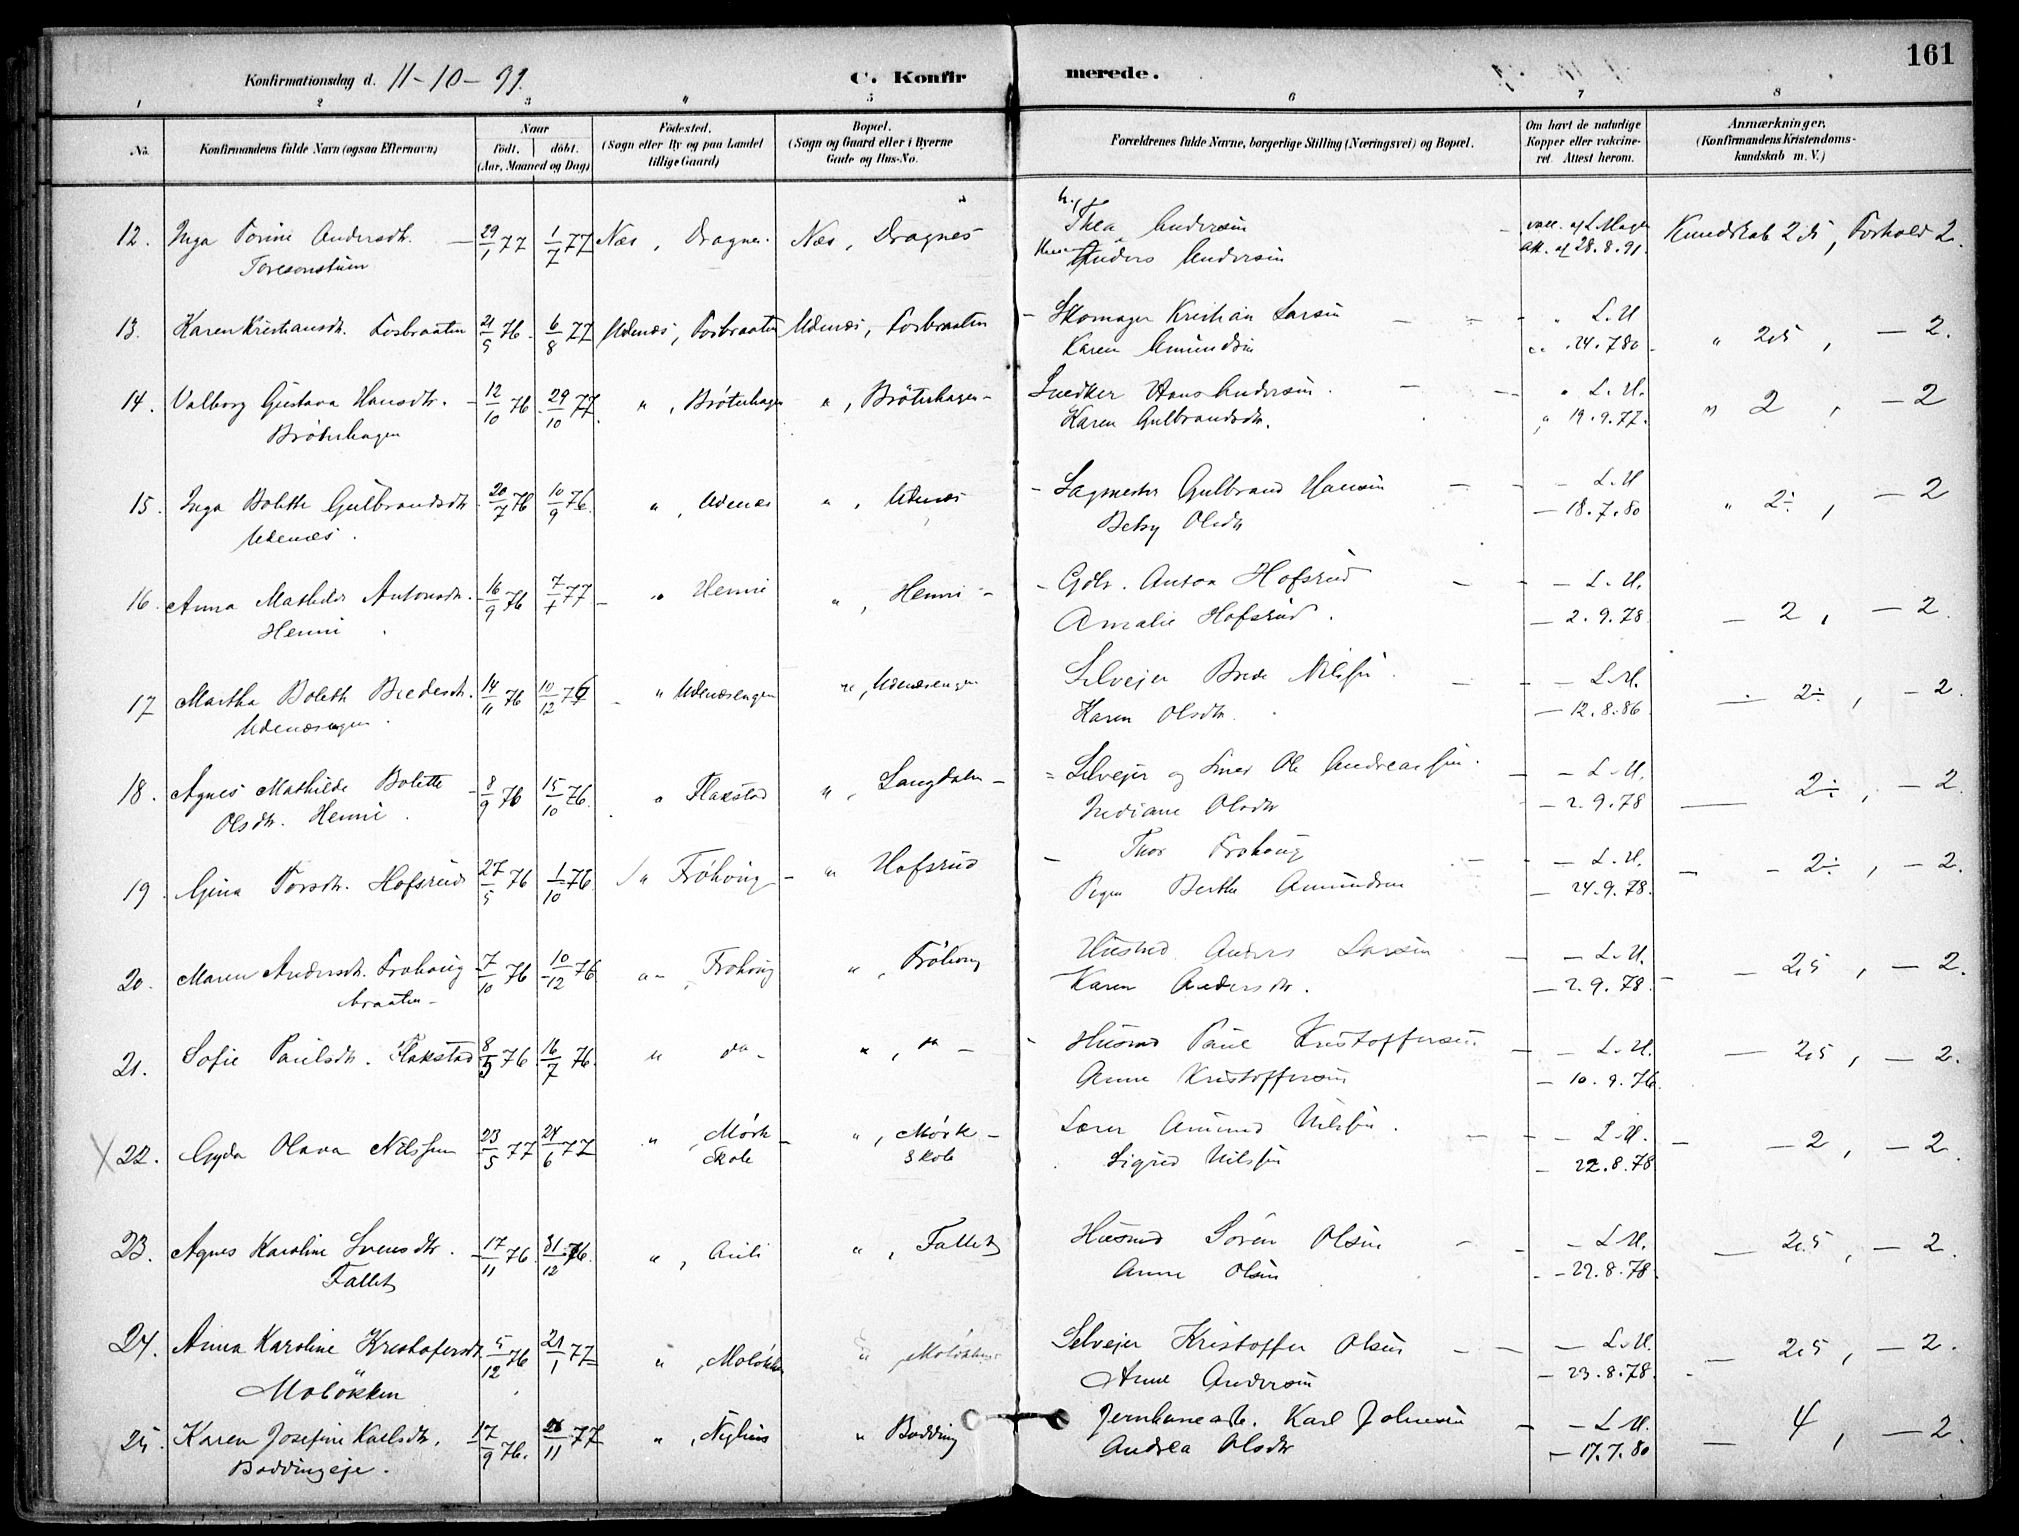 161
Konfirmationsdag d. 11-10-91. C. Konfirmerede.
1 2 3 4 5 6 7 8
No. Konfirmandens fulde Navn (ogsaa Efternavn) Naar født. døbt. (Aar, Maaned og Dag) Fødested. (Sogn eller By og paa Landet tillige Gaard) Bopæl. (Sogn og Gaard eller i Byerne Gade og Hus-No. Forældrenes fulde Navne, borgerlige Stilling (Næringsvei) og Bopæl. Om havt de naturlige Kopper eller vakcineret. Attest herom. Anmærkninger, (Konfirmandens Kristendomskundskab m. V.)
12. Inga Torine Andersdtr. 29/1 77 1/7 77 Næs, Dragnes. Næs, Dragnes Thea Andersen vacc. af L. Mager Kundskab 2,5, Forhold 2.
Anders Andersen att. af 28.8.91.
13. Karen Kristiansdtr. Fosbraaten 21/5 76. 6/8 77 Udenæs, Fosbraaten Udenæs, Fosbraaten - Skomager Kristian Larsen " L.U " 2,5, - 2.
Karen Amundsen " 24.7.80
14. Valborg Gustava Hansdtr. 12/10 76. 29/10 77. ", Brøterhagen ", Brøterhagen - Snedker Hans Andersen. " L.U. " 2, - 2
Brøterhagen Karen Gulbrandsdtr. " 19.9.77.
15. Inga Bolette Gulbrandsdtr 20/7 76 10/9 76. ", Udenæs ", Udenæs - Sagmester Gulbrand Hansen - L.U " 2÷, - 2
Udenæs. Betsy Olsdtr - 18.7.80
16. Anna Mathilde Antonsdtr. 16/9 76 7/1 77 " Henni ", Henni - - Gdbr. Anton Hofsrud - L.U. - 2, - 2
Henni. Amalie Hofsrud. - 2.9.78
17 Martha Boleth Bredesdtr. 14/11 76 10/12 76 " Udenæsengen ", Udenæsengen Selvejer Brede Nilssen - L.U. - 2÷, - 2.
Udenæsengen. Karen Olsdtr. - 12.8.86
18. Agnes Mathilde Bolette 8/9 76 15/10 76. " Flakstad ", Langdalen - Selvejer og Smed Ole Andreassen. - L.U. - 2÷, - 2.
Olsdtr. Henni. Indiane Olsdtr - 2.9.78
19. Gina Torsdtr. Hofsrud 27/5 76 1/10 76 " Frøhoug - " Hofsrud - Thor Frohoug - L.U. - 2÷, - 2.
Pigen Berthe Amundsen - 24.9.78.
20. Maren Andersdtr. Frohoug 7/10 76 10/12 76 " Frohoug ", Frøhoug Husmd Anders Larsen - L.U. - 2,5, - 2.
braaten - Karen Andersdtr. - 2.9.78.
21. Sofie Paulsdtr. Flakstad 8/5 76. 16/7 76. " do - ", do - - Husmd Paul Kristoffersen. - L.U. - 2,5, - 2.
Anne Kristoffersen - 10.9.76
X 22. Gyda Olava Nilssen 23/5 77 24/6 77 " Mørk - ", Mørk - Lærer Amund Nilssen. - L.U. - 2, - 2.
Skole Skole Sigrid Nilssen - 22.8.78
23. Agnes Karoline Svensdtr. 17/11 76. 31/12 76. ", Auli ", Fallet Husmd Søren Olsen - L.U. - 2,5, - 2.
Fallet Anne Olsen - 22.8.78
24. Anna Karoline Kristofersdtr. 5/12 76 21/1 77 ", Moløkken " Moløkken Selvejer Kristoffer Olsen - L.U. - 2,5, - 2.
Moløkken Anne Andersen - 23.8.78.
25. Karen Josefine Karlsdtr. 17/9 76. 11 77 ", Nyhus " Bodding Jernbanearb. Karl Johnsen - L.U. - 4, - 2.
Boddingeje. Andrea Olsdtr - 17.7.80